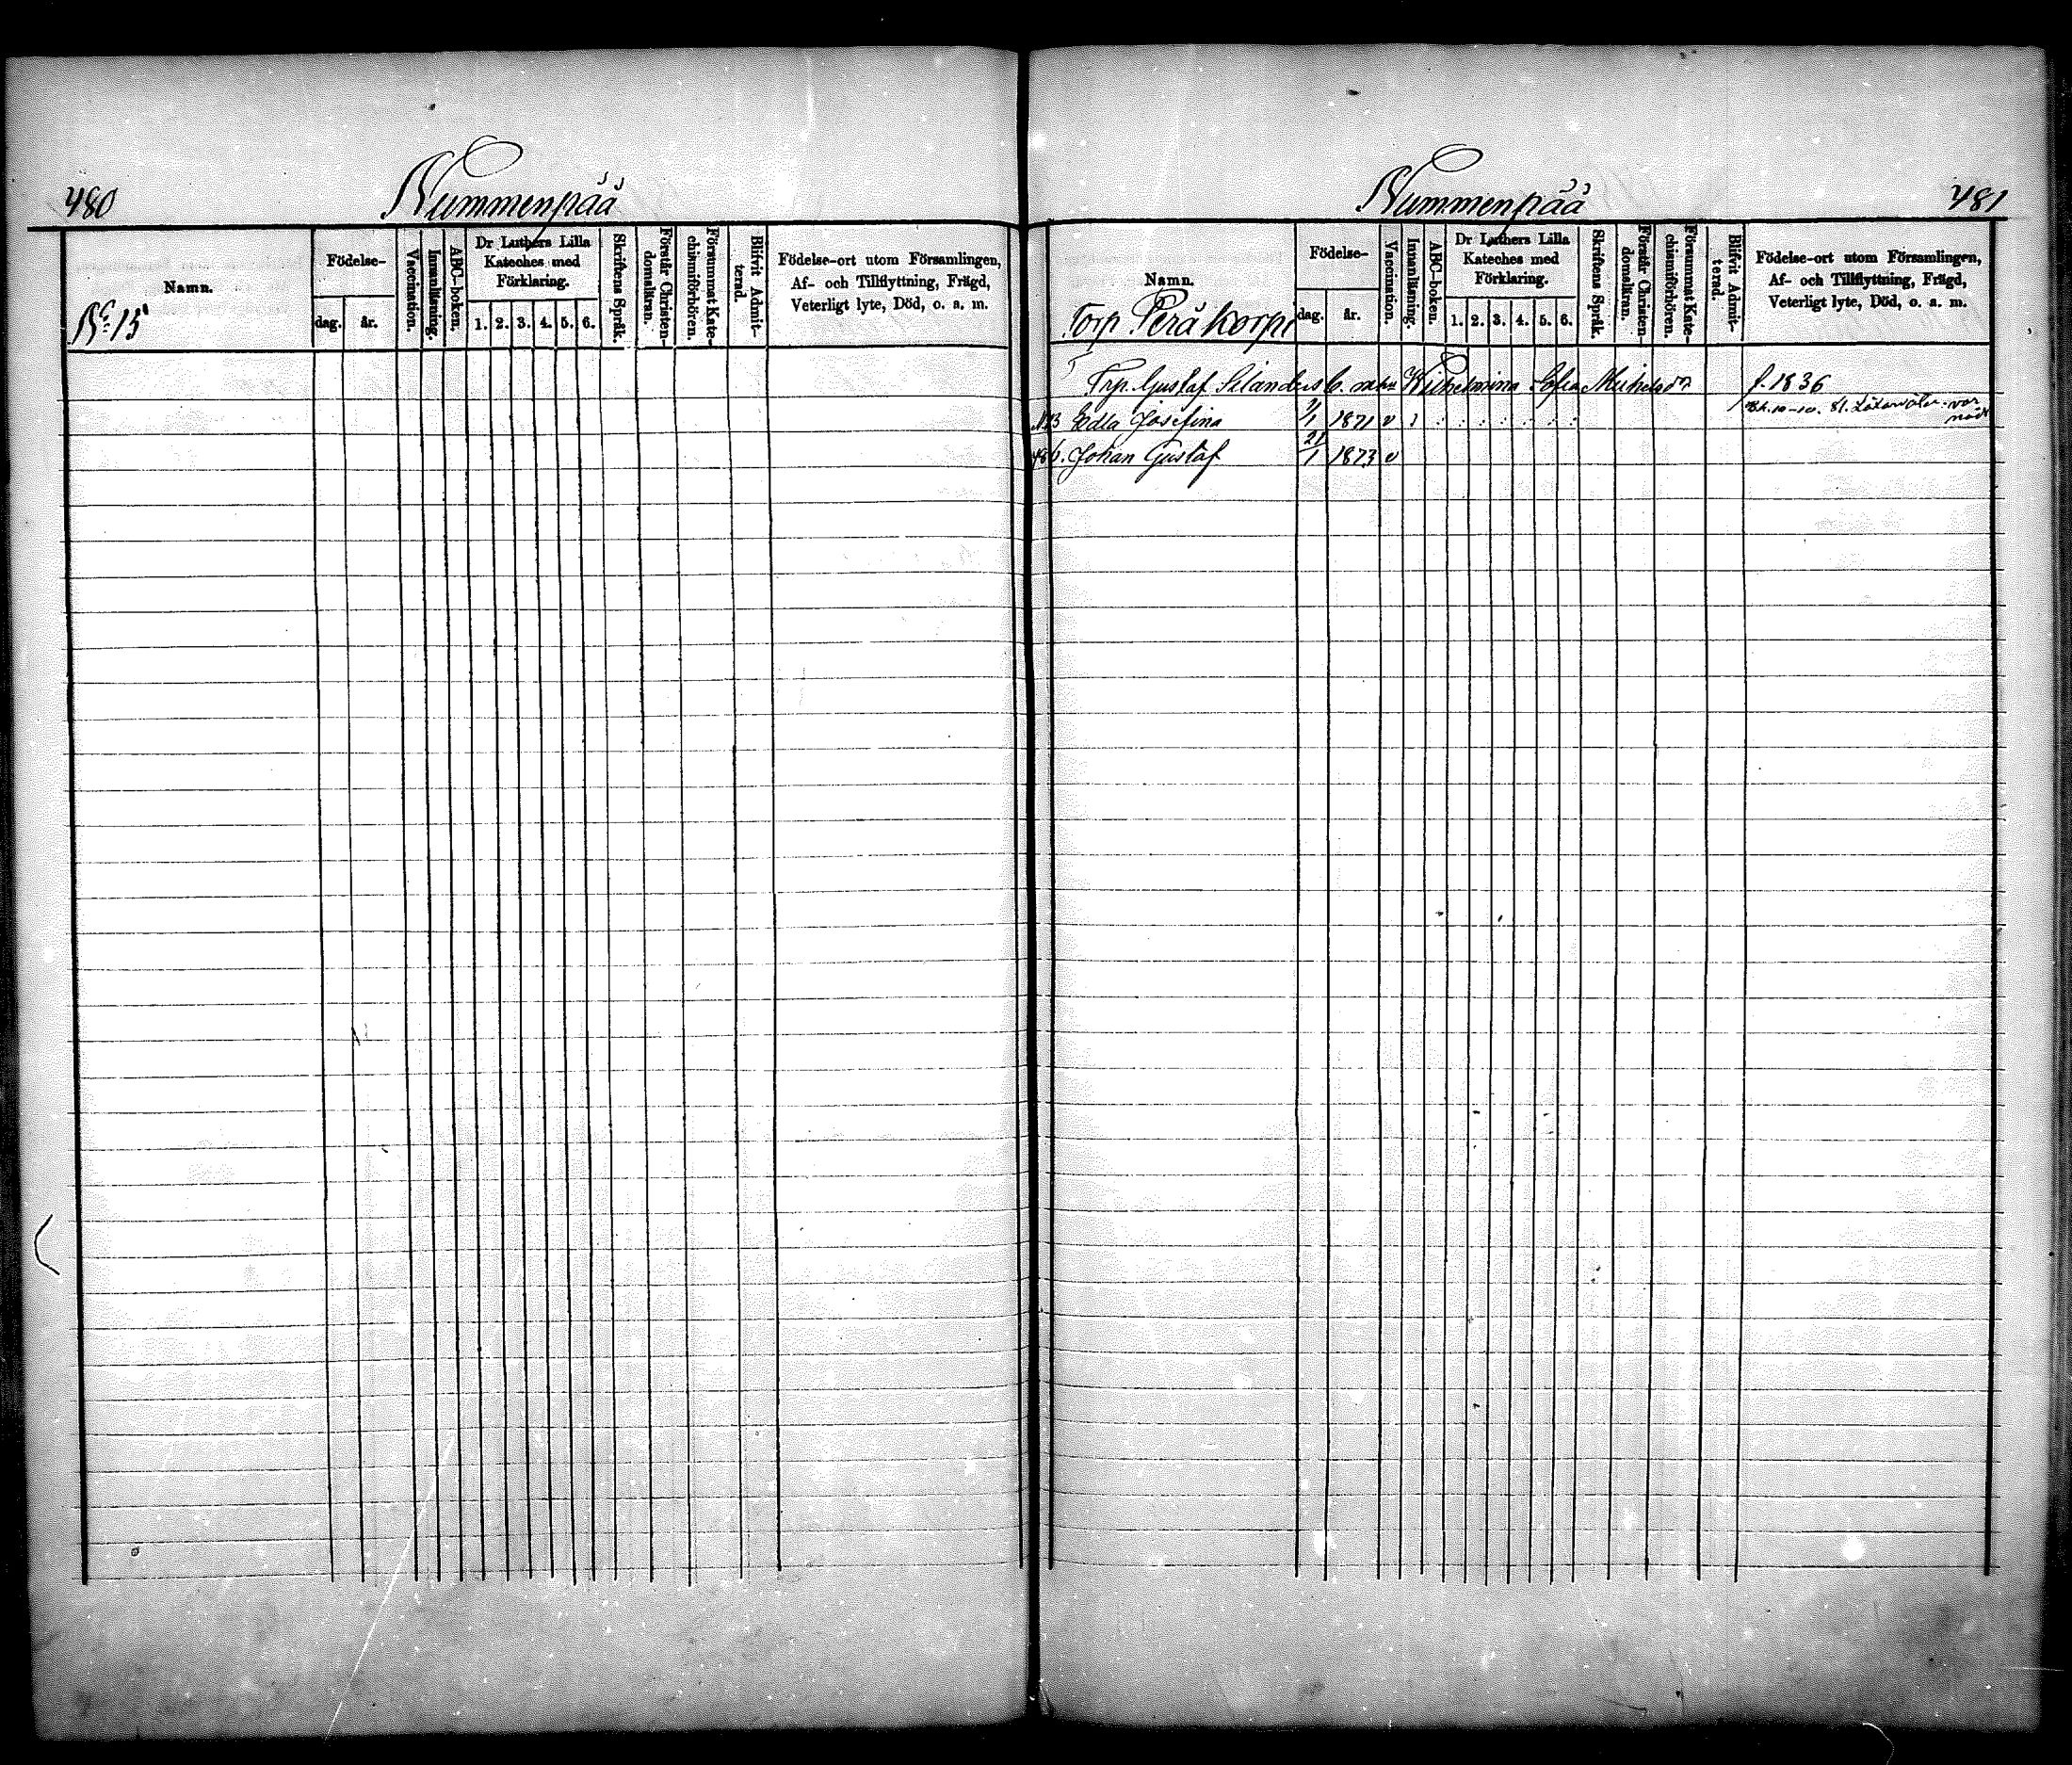 480
Nummenpää
Namn.
Nº 15
Födelse-
dag.
år.
Vaccination.
Innanläsning.
ABC-boken.
Dr Luthers Lilla
Kateches med
Förklaring.
1. 2. 3. 4. 5. 6.
Skriftens Språk.
Förstår Christen-
domsläran.
Försummat Kate-
chismiförhören.
Blifvit Admit-
terad.
Födelse-ort utom Församlingen,
Af- och Tillflyttning, Frägd,
Veterligt lyte, Död, o. a. m.
Nummenpää
481
Namn.
Torp Peräkorpi
Födelse-
dag.
år.
Vaccination.
Innanläsning.
ABC-boken.
Dr Luthers Lilla
Kateches med
Förklaring.
1. 2. 3. 4. 5. 6.
Skriftens Språk.
Förstår Christen-
domsläran.
Försummat Kate-
chismiförhören.
Blifvit Admit-
terad.
Födelse-ort utom Församlingen,
Af- och Tillflyttning, Frägd,
Veterligt lyte, Död, o. a. m.
Trp. Gustaf Selanders Wilhelmina Sofia f. 1836
Edla Josefina 1871 v
Johan Gustaf 21/1 1873 v